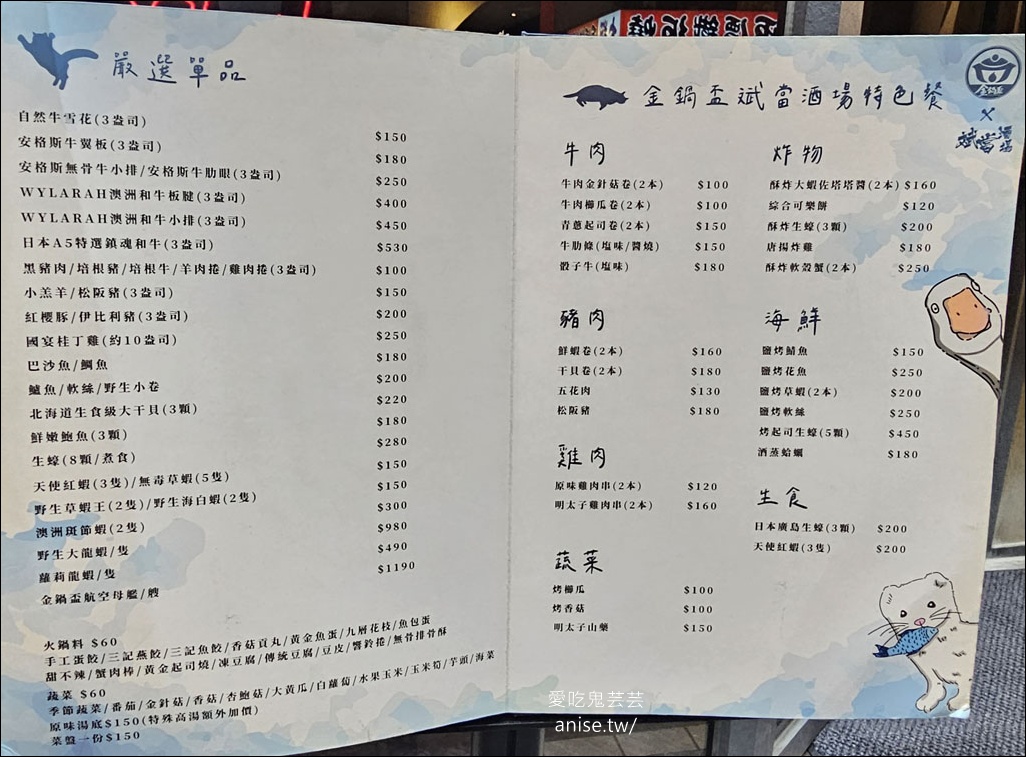 嚴選單品
自然牛雪花(3盎司) $150
安格斯牛翼板(3盎司) $180
安格斯無骨牛小排/安格斯牛肋眼(3盎司) $250
WYLARAH澳洲和牛板腱(3盎司) $400
WYLARAH澳洲和牛小排(3盎司) $450
日本A5特選鎮魂和牛(3盎司) $530
黑豬肉/培根豬/培根牛/羊肉捲/雞肉捲(3盎司) $100
小羔羊/松阪豬(3盎司) $150
紅櫻豚/伊比利豬(3盎司) $200
國宴桂丁雞(約10盎司) $250
巴沙魚/鯛魚 $180
鱸魚/軟絲/野生小卷 $200
北海道生食級大干貝(3顆) $220
鮮嫩鮑魚(3顆) $180
生蠔(8顆/煮食) $280
天使紅蝦(3隻)/無毒草蝦(5隻) $150
野生草蝦王(2隻)/野生海白蝦(2隻) $150
澳洲斑節蝦(2隻) $300
野生大龍蝦/隻 $980
蘿莉龍蝦/隻 $490
金鍋盃航空母艦/艘 $1190
火鍋料 $60
手工蛋餃/三記燕餃/三記魚餃/香菇貢丸/黃金魚蛋/九層花枝/魚包蛋
甜不辣/蟹肉棒/黃金起司燒/凍豆腐/傳統豆腐/豆皮/響鈴捲/無骨排骨酥
蔬菜 $60
季節蔬菜/番茄/金針菇/香菇/杏鮑菇/大黃瓜/白蘿蔔/水果玉米/玉米筍/芋頭/海菜
原味湯底$150(特殊高湯額外加價)
菜盤一份$150
金鍋盃斌當酒場特色餐
金鍋盃
×
斌當酒場
牛肉
牛肉金針菇卷(2本) $100
牛肉櫛瓜卷(2本) $100
青蔥起司卷(2本) $150
牛肋條(塩味/醬燒) $150
骰子牛(塩味) $180
豬肉
鮮蝦卷(2本) $160
干貝卷(2本) $180
五花肉 $130
松阪豬 $180
雞肉
原味雞肉串(2本) $120
明太子雞肉串(2本) $160
蔬菜
烤櫛瓜 $100
烤香菇 $100
明太子山藥 $150
炸物
酥炸大蝦佐塔塔醬(2本) $160
綜合可樂餅 $120
酥炸生蠔(3顆) $200
唐揚炸雞 $180
酥炸軟殼蟹(2本) $250
海鮮
鹽烤鯖魚 $150
鹽烤花魚 $250
鹽烤草蝦(2本) $200
鹽烤軟絲 $250
烤起司生蠔(5顆) $450
酒蒸蛤蠣 $180
生食
日本廣島生蠔(3顆) $200
天使紅蝦(3隻) $200
愛吃鬼芸芸
anise.tw/